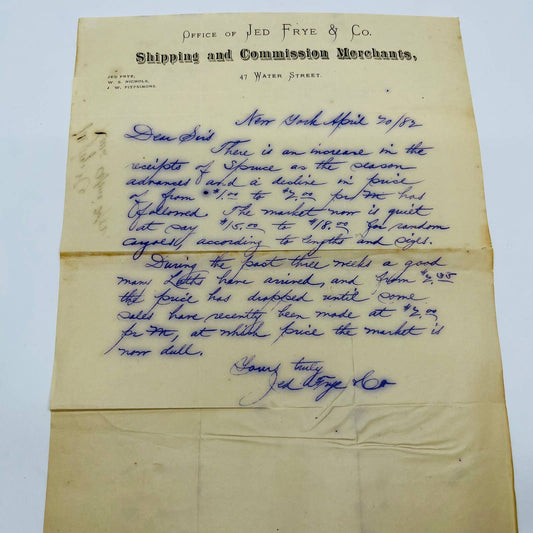 Office of Jed Frye & Co.
Shipping and Commission Merchants,
47 Water Street.
Jed Frye,
W. S. Nichols,
J. W. Fitzsimons.
New York April 20/82
Dear Sirs
There is an increase in the
reciepts of Spruce as the season
advances and a decline in price
of from $1.00 to $2.00 pr M has
followed The market now is quiet
at say $15.00 to $18.00 for random
cargoes, according to lengths and sizes.
During the past three weeks a good
many Laths have arrived, and from
the price has dropped until some
sales have recently been made at $2.00
pr M, at which price the market is
now dull.
Yours truly
Jed Frye & Co